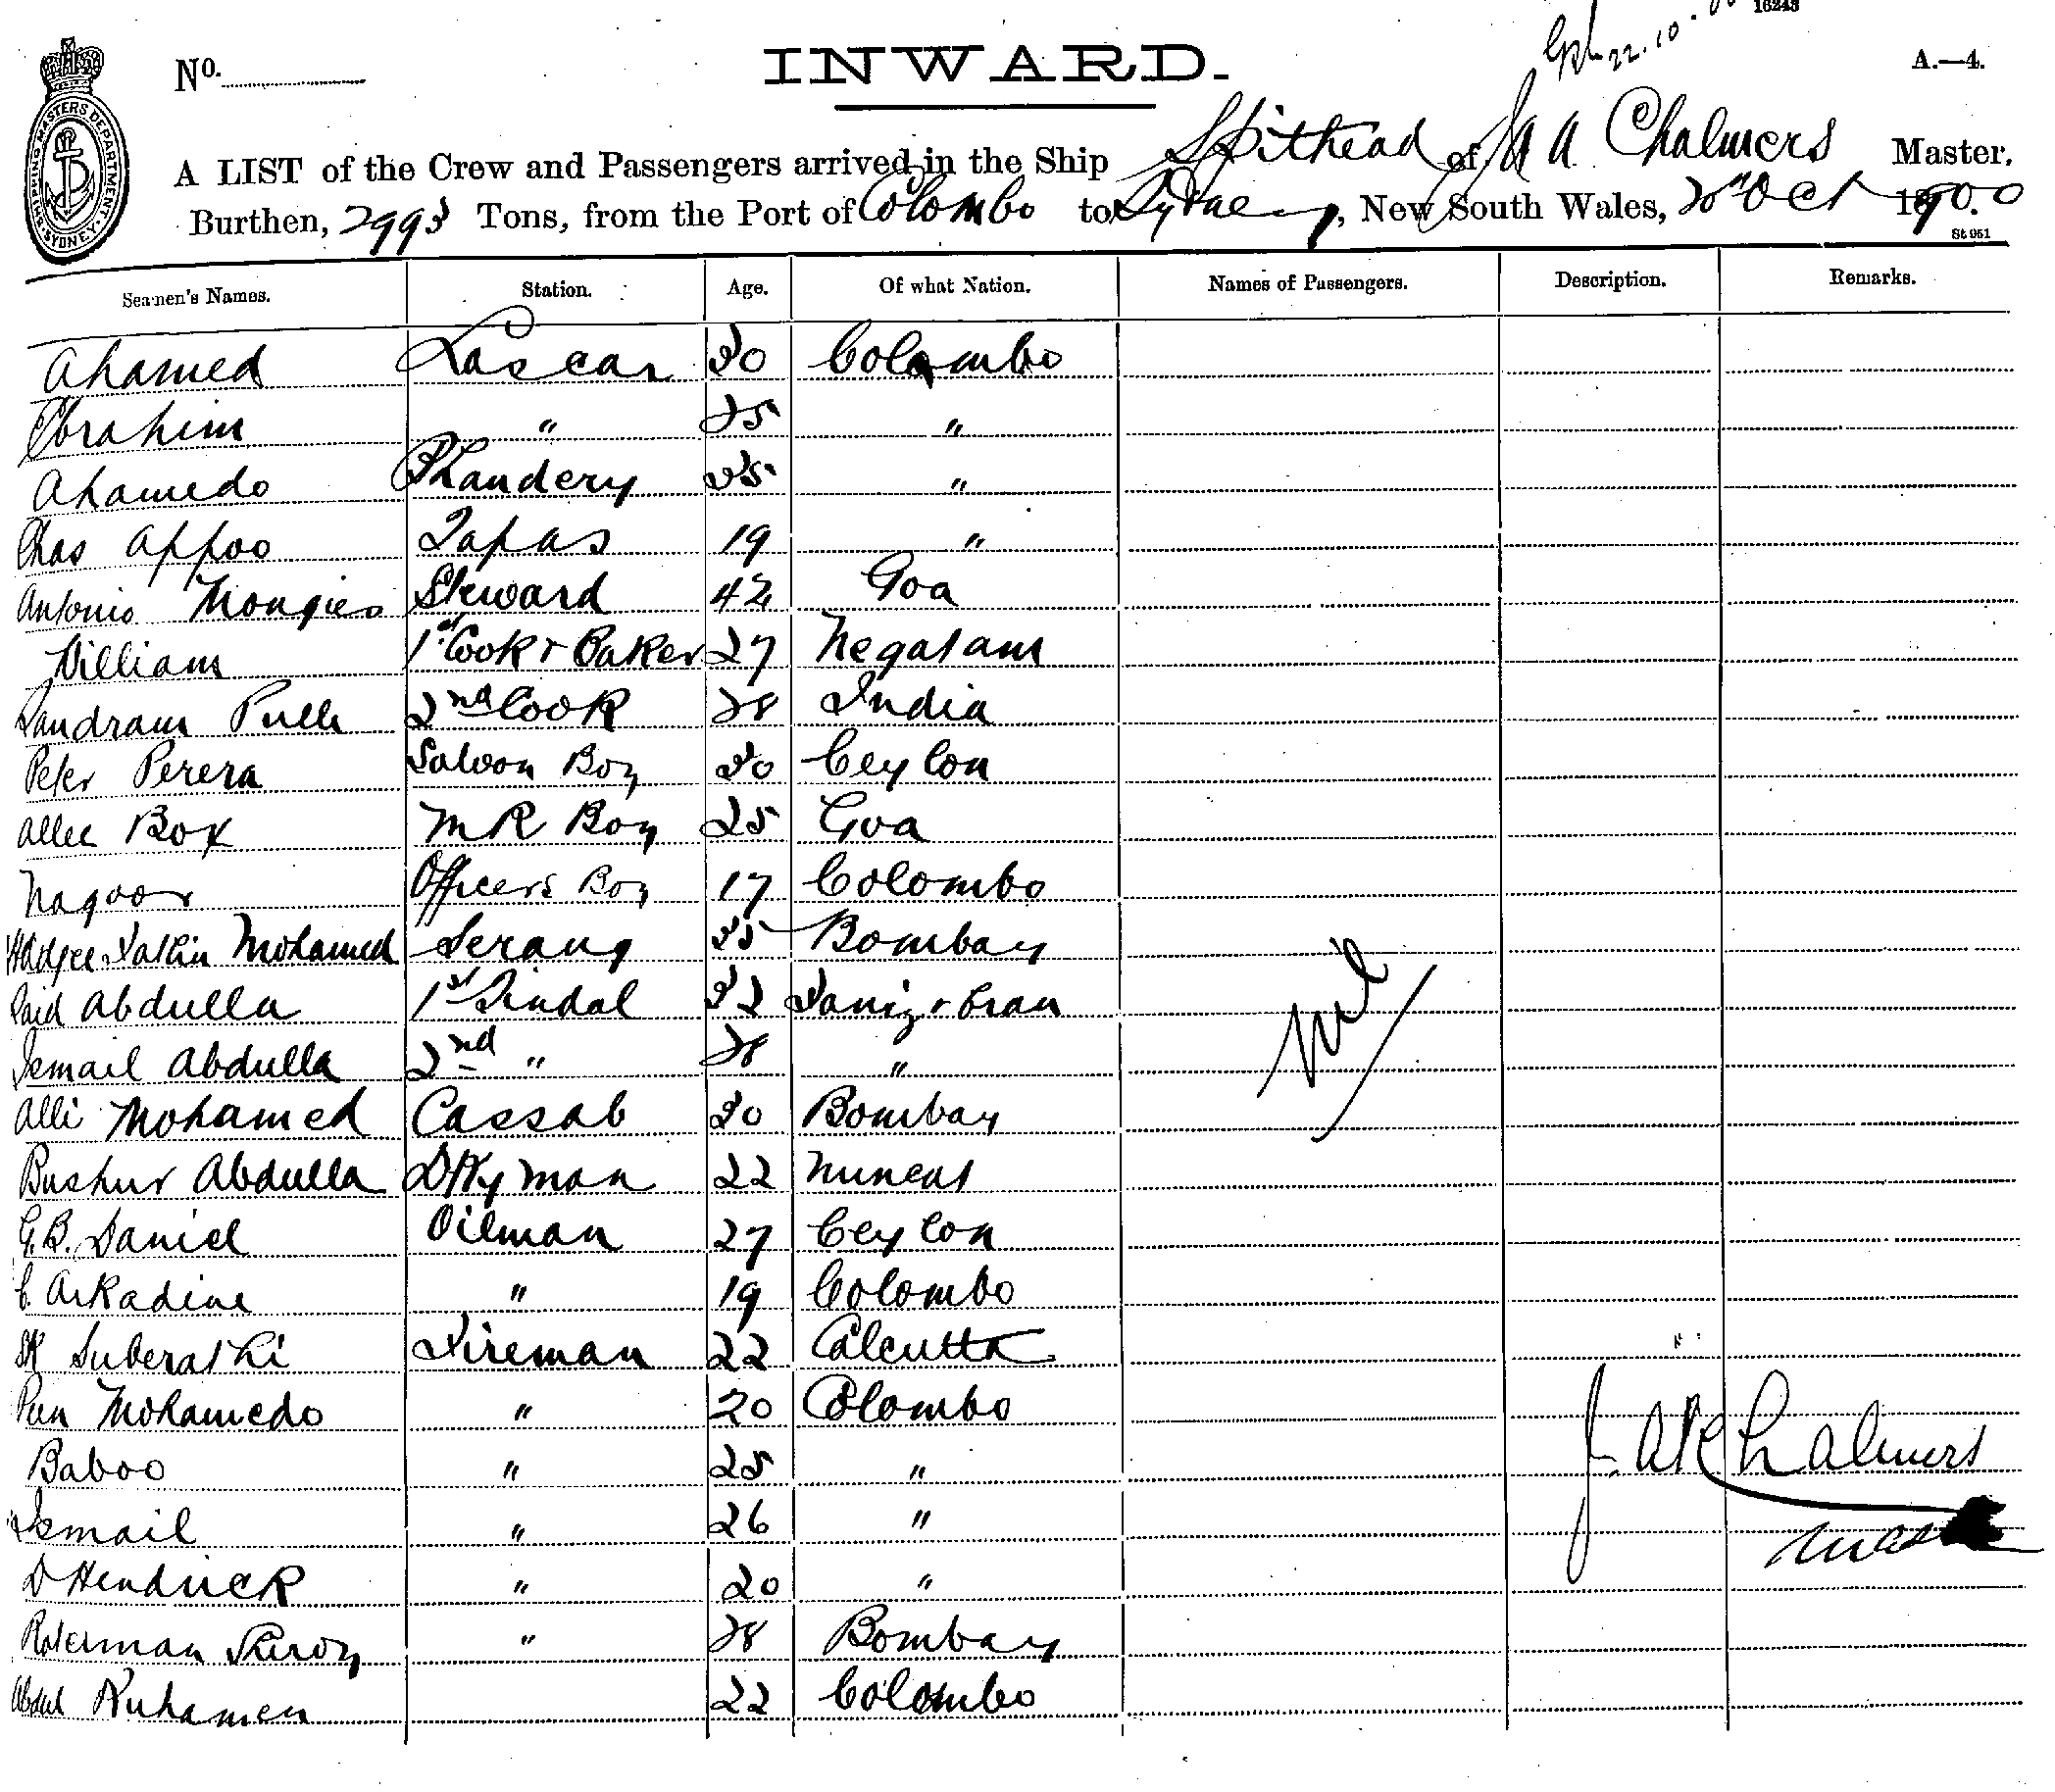 16243
22.10.00
No.
INWARD.
A.—4.
SHIPPING MASTERS DEPARTMENT. SYDNEY.
A LIST of the Crew and Passengers arrived in the Ship Spithead of J A A Chalmers Master,
Burthen, 2993 Tons, from the Port of Colombo to Sydney, New South Wales, Oct 1900
St 951
Seamen's Names. Station. Age. Of what Nation. Names of Passengers. Description. Remarks.
Ahamed Lascar 20 Colombo
Ebrahim " 25 "
Ahamedo Bhandery 25 "
Chas Appoo Topas 19 "
Antonio Steward 42 Goa
William 1st Cook & Baker 27 Negatam
Pulle 2nd Cook 28 India
Peter Perera Saloon Boy 20 Ceylon
Allee Box M R Boy 25 Goa
Nagoor Officers Boy 17 Colombo
Mohamed Serang Bombay
Said Abdulla 1st Tindal
Ismail Abdulla 2nd " 28 "
Alli Mohamed Cassab 20 Bombay
Bushur Abdulla Dkyman 22
G.B. Daniel Oilman 27 Ceylon
C. Arkadine " 19 Colombo
SK Suberathi Fireman 22 Calcutta
Mohamedo " 20 Colombo
Baboo " 25 "
Ismail " 26 "
D Hendrick " 20 "
" 28 Bombay
Abdul Ruhamen 22 Colombo
Nil
J. A A Chalmers